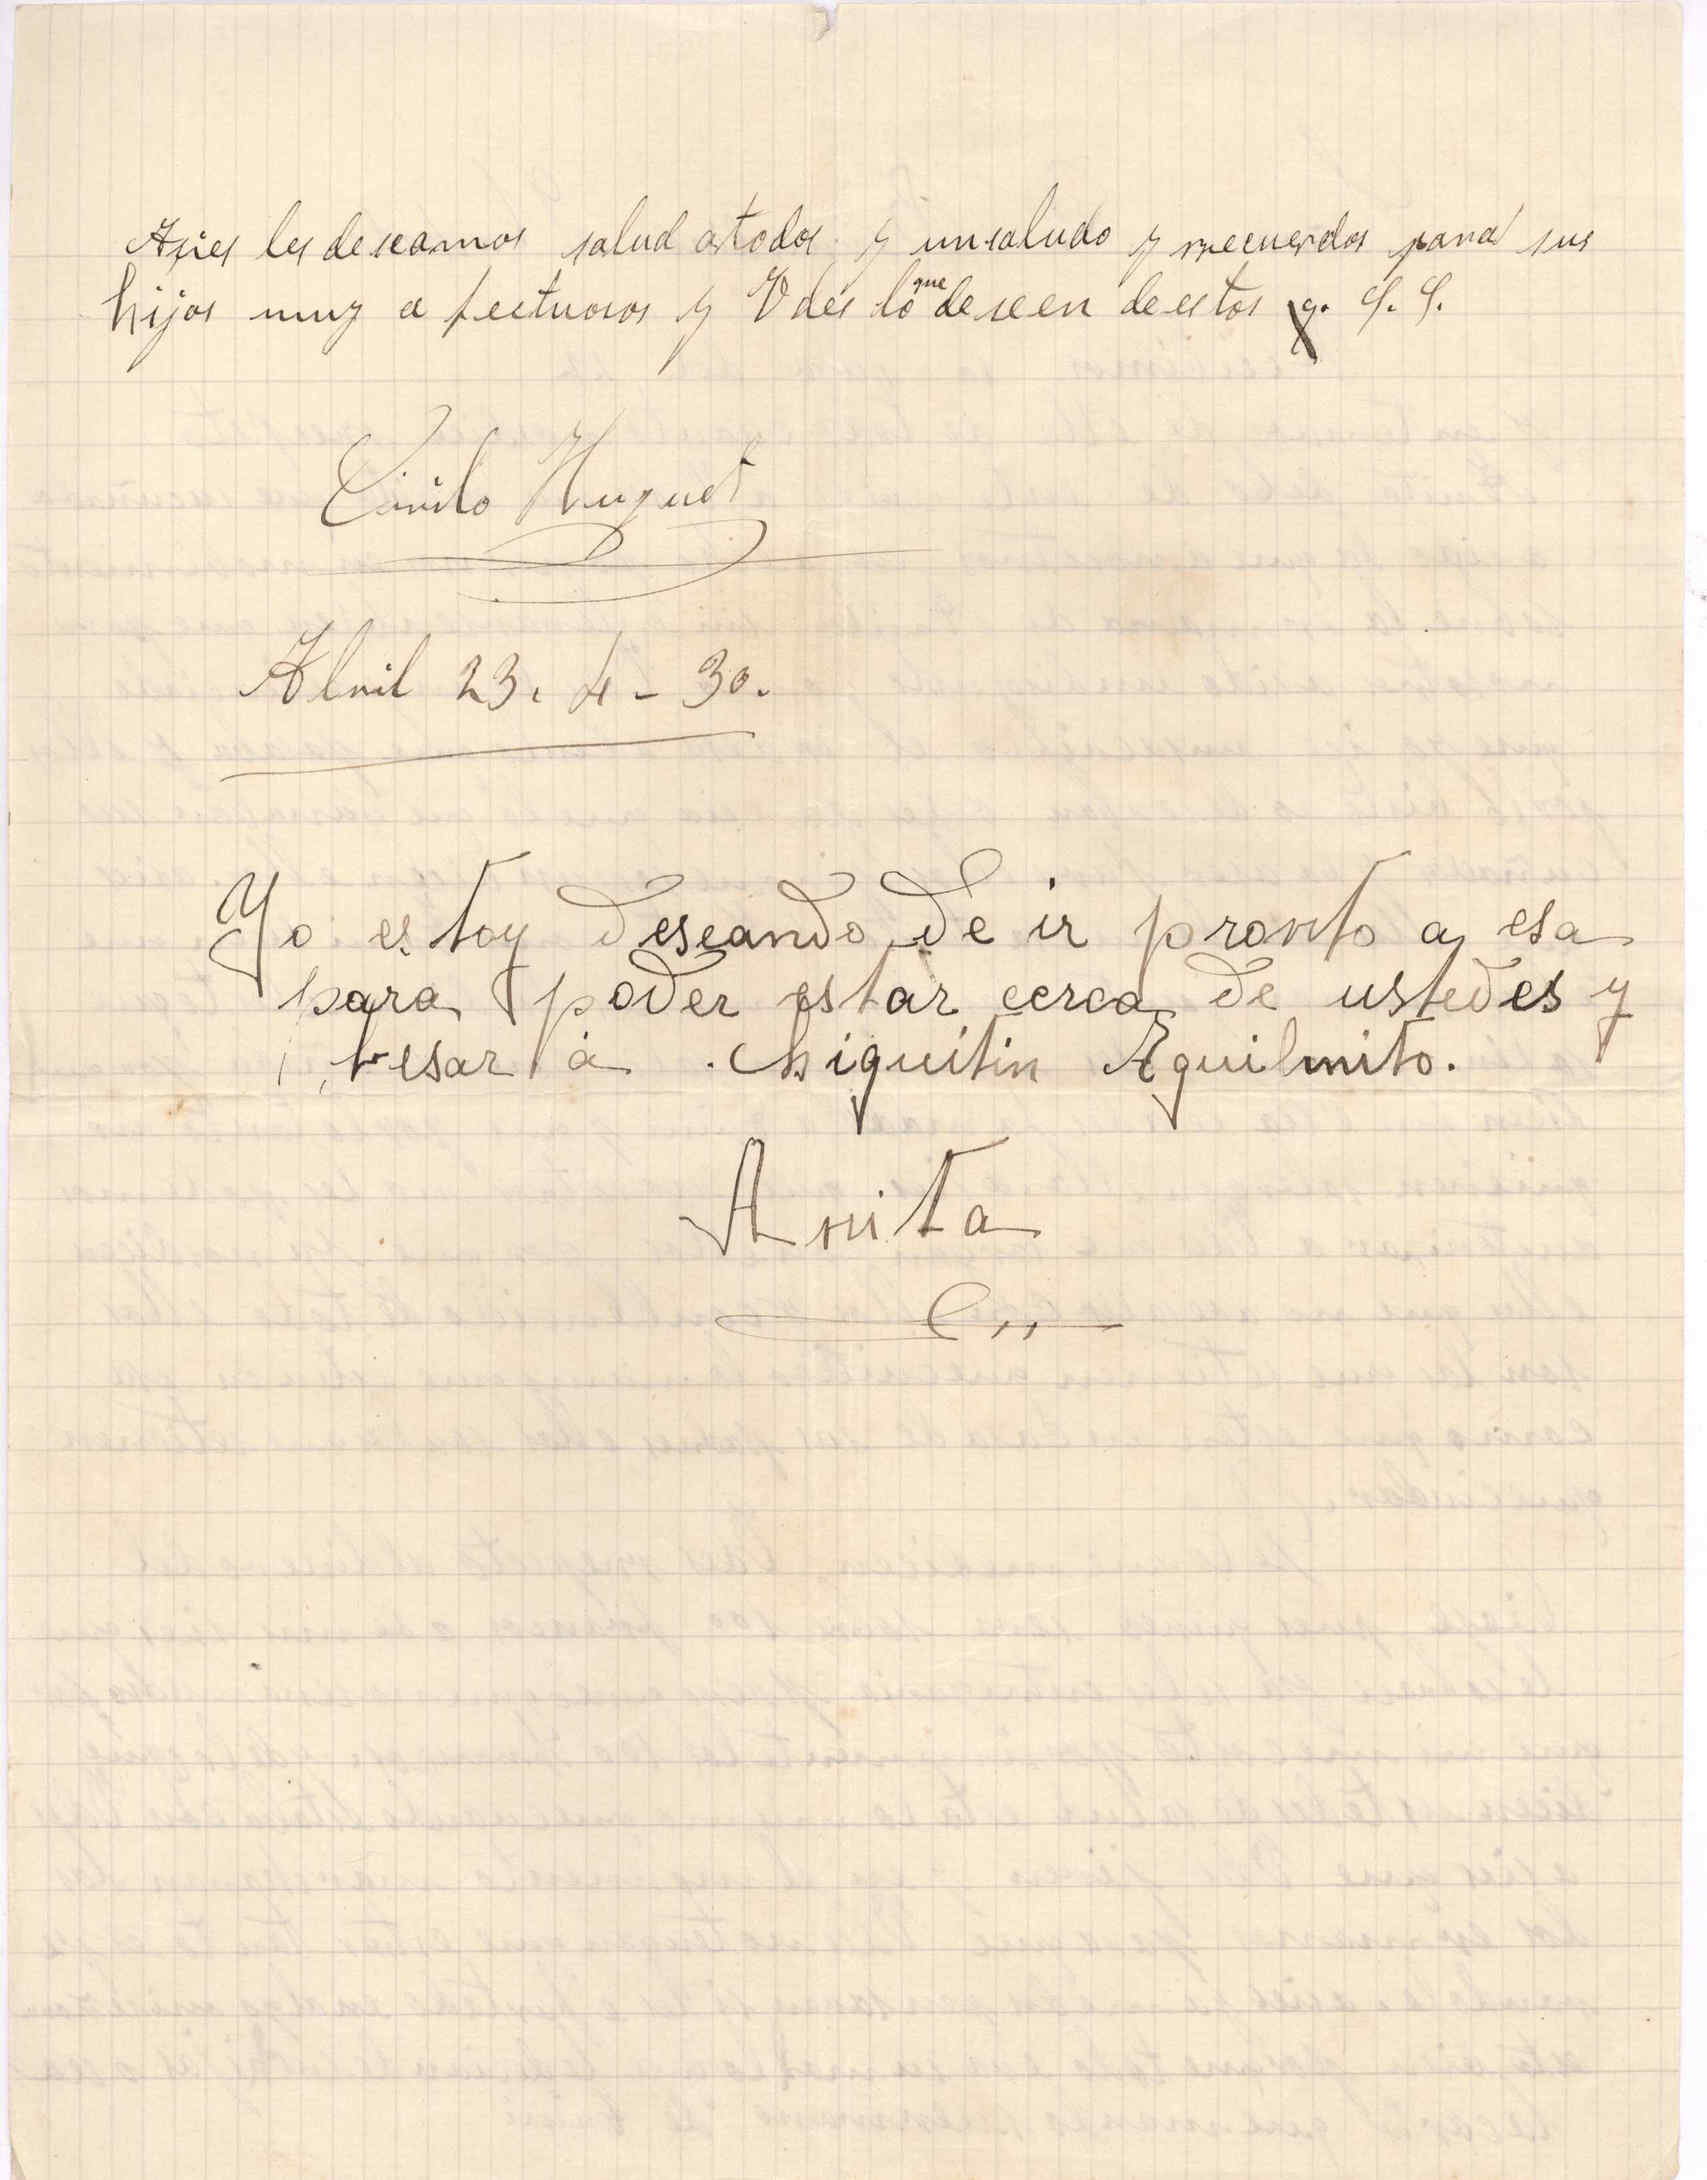 Asies les deseamos salud a todos y un saludo y recuerdos para sus
hijos muy afectuosos y Vdes lo que deseen de estos q. S. S.
Camilo Huguet
Abril 23. 4 - 30.
Yo estoy deseando de ir pronto a esa
para poder estar cerca de ustedes y
besar á chiquitin
Anita